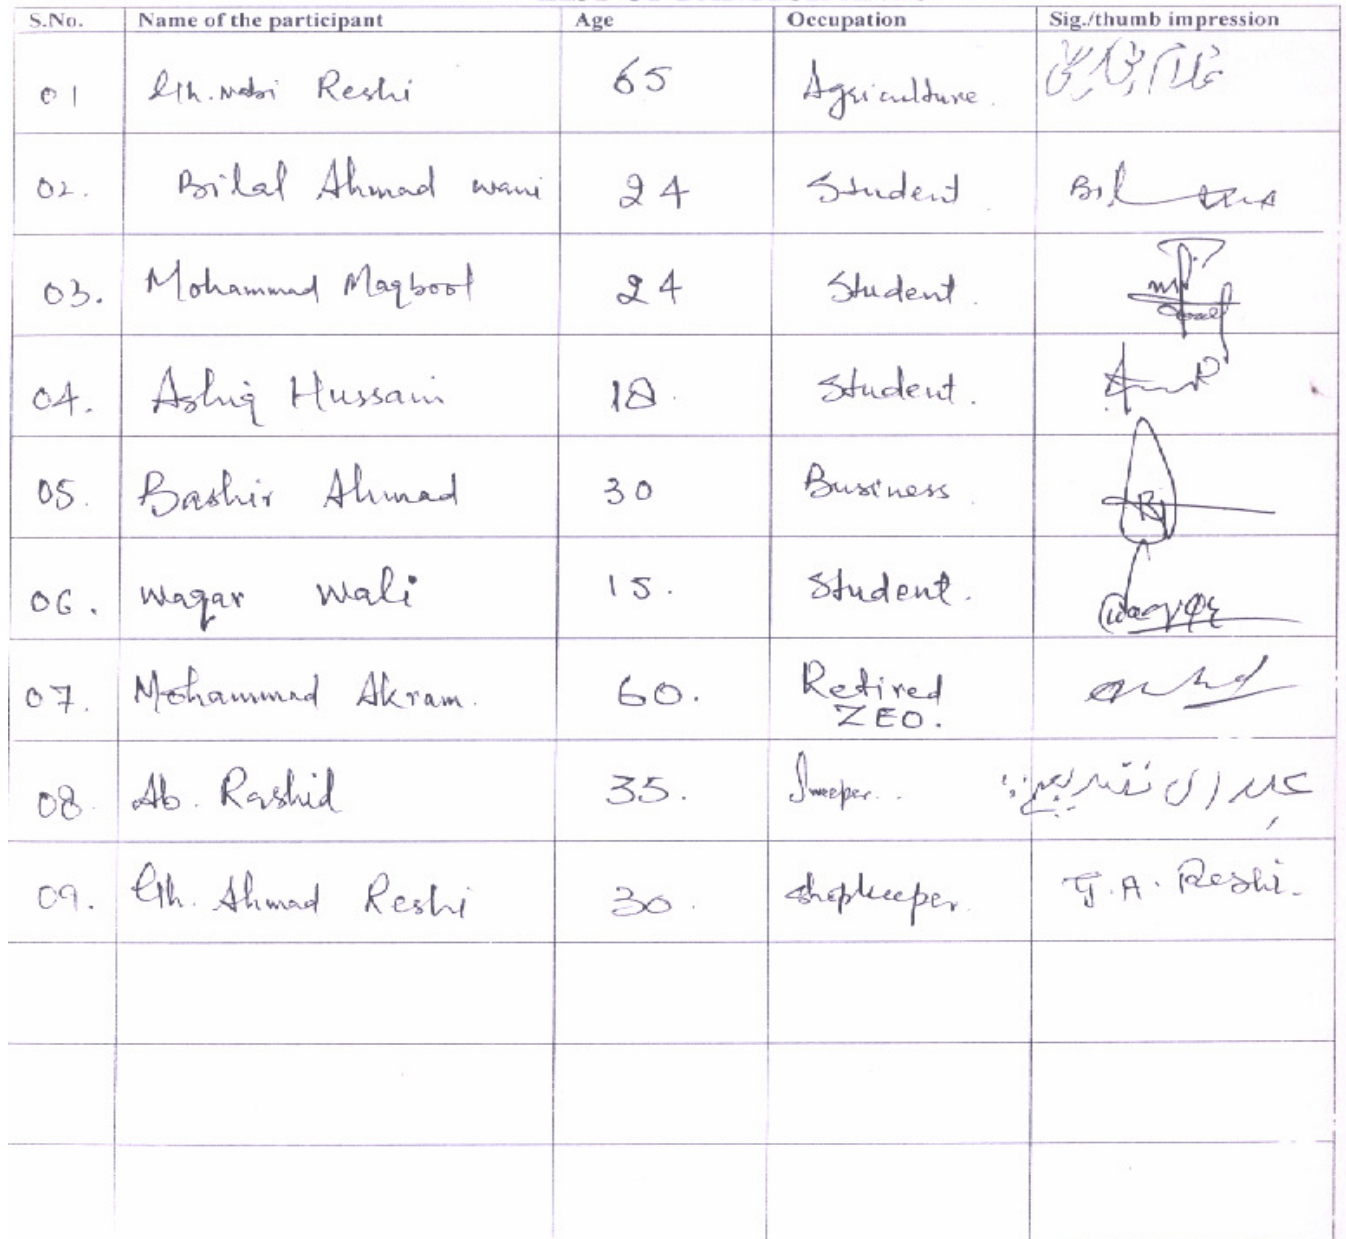 S.No. Name of the participant Age Occupation Sig./thumb impression
01 Gh. Nabi Reshi 65 Agriculture. غلام نبی ریشی
02. Bilal Ahmad wani 24 Student Bil
03. Mohammad Maqbool 24 Student.
04. Ashiq Hussain 18. Student.
05. Bashir Ahmad 30 Business
06. waqar wali 15. Student. Waqar
07. Mohammad Akram. 60. Retired
ZEO.
08. Ab. Rashid 35. Sweeper..
09. Gh. Ahmad Reshi 30. shopkeeper. G.A. Reshi.